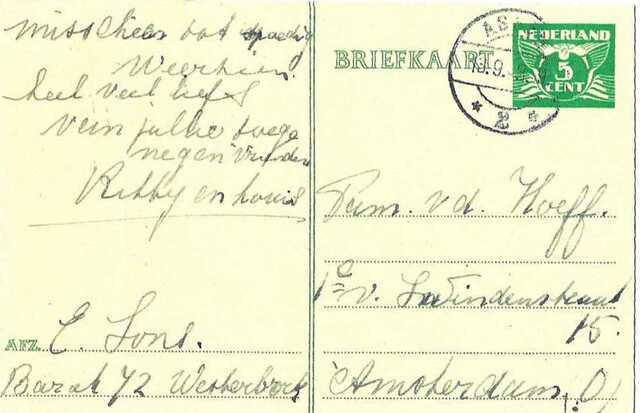 misschien tot spoedig
Weerzien.
heel veel liefs
van jullie toege
negen vrienden
Ribby en Louis
AFZ. E. Sons.
Barak 72 Westerbork
BRIEFKAART
NEDERLAND
5
CENT
AS
19.9.
* 2 *
Fam. v.d. Hoeff.
1e v. Swindenstraat
15.
Amsterdam. O.